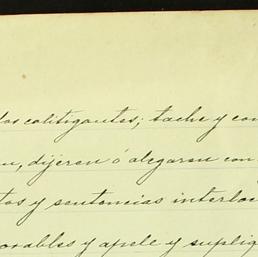 los colitigantes; tache y con
en, dijeren ó alegaren con
tos y sentencias interloc
orables y apele y supliq